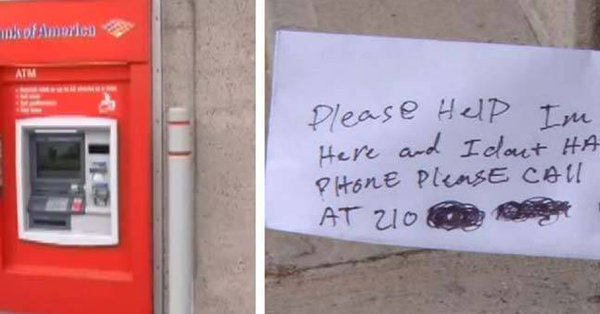 nk of America
ATM
Please HElP Im
Here and I dont HA
PHONE PlEASE CAll
AT 210